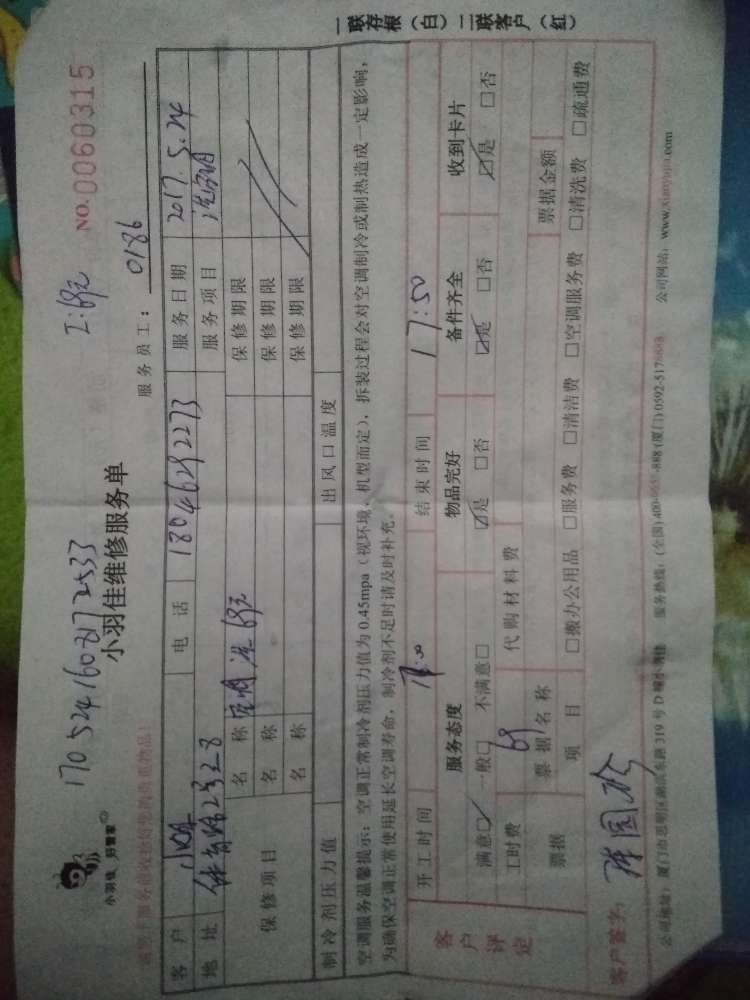 小羽佳 好管家
170524160817 2533
工:69元
NO.0060315
小羽佳维修服务单
服务员工: 0186
客户 电话 18046292273 服务日期 2017.5.24
地址 服务项目
保修项目 名称 保修期限
名称 保修期限
名称 保修期限
制冷剂压力值 出风口温度
空调服务温馨提示:空调正常制冷剂压力值为0.45mpa(视环境、机型而定),拆装过程会对空调制冷或制热造成一定影响,
为确保空调正常使用延长空调寿命,制冷剂不足时请及时补充。
客户评定
开工时间 结束时间 17:50
服务态度 物品完好 备件齐全 收到卡片
满意☑ 一般□ 不满意□ ☑是 □否 ☑是 □否 ☑是 □否
工时费 69 代购材料费
票据 票据名称 票据金额
项目 □搬办公用品 □服务费 □清洁费 □空调服务费 □清洗费 □疏通费
客户签字:
公司地址:厦门市思明区湖滨东路319号D幢 服务热线:(全国)400 -888 (厦门)0592-517 公司网站:www.xiaoyujia.com
一联存根(白)二联客户(红)